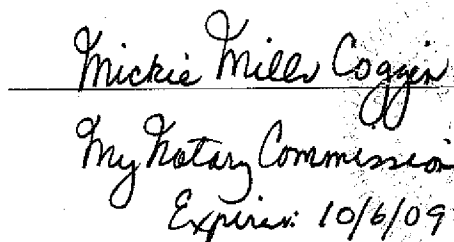 Mickie Mills Coggin
My Notary Commission
Expires: 10/6/09